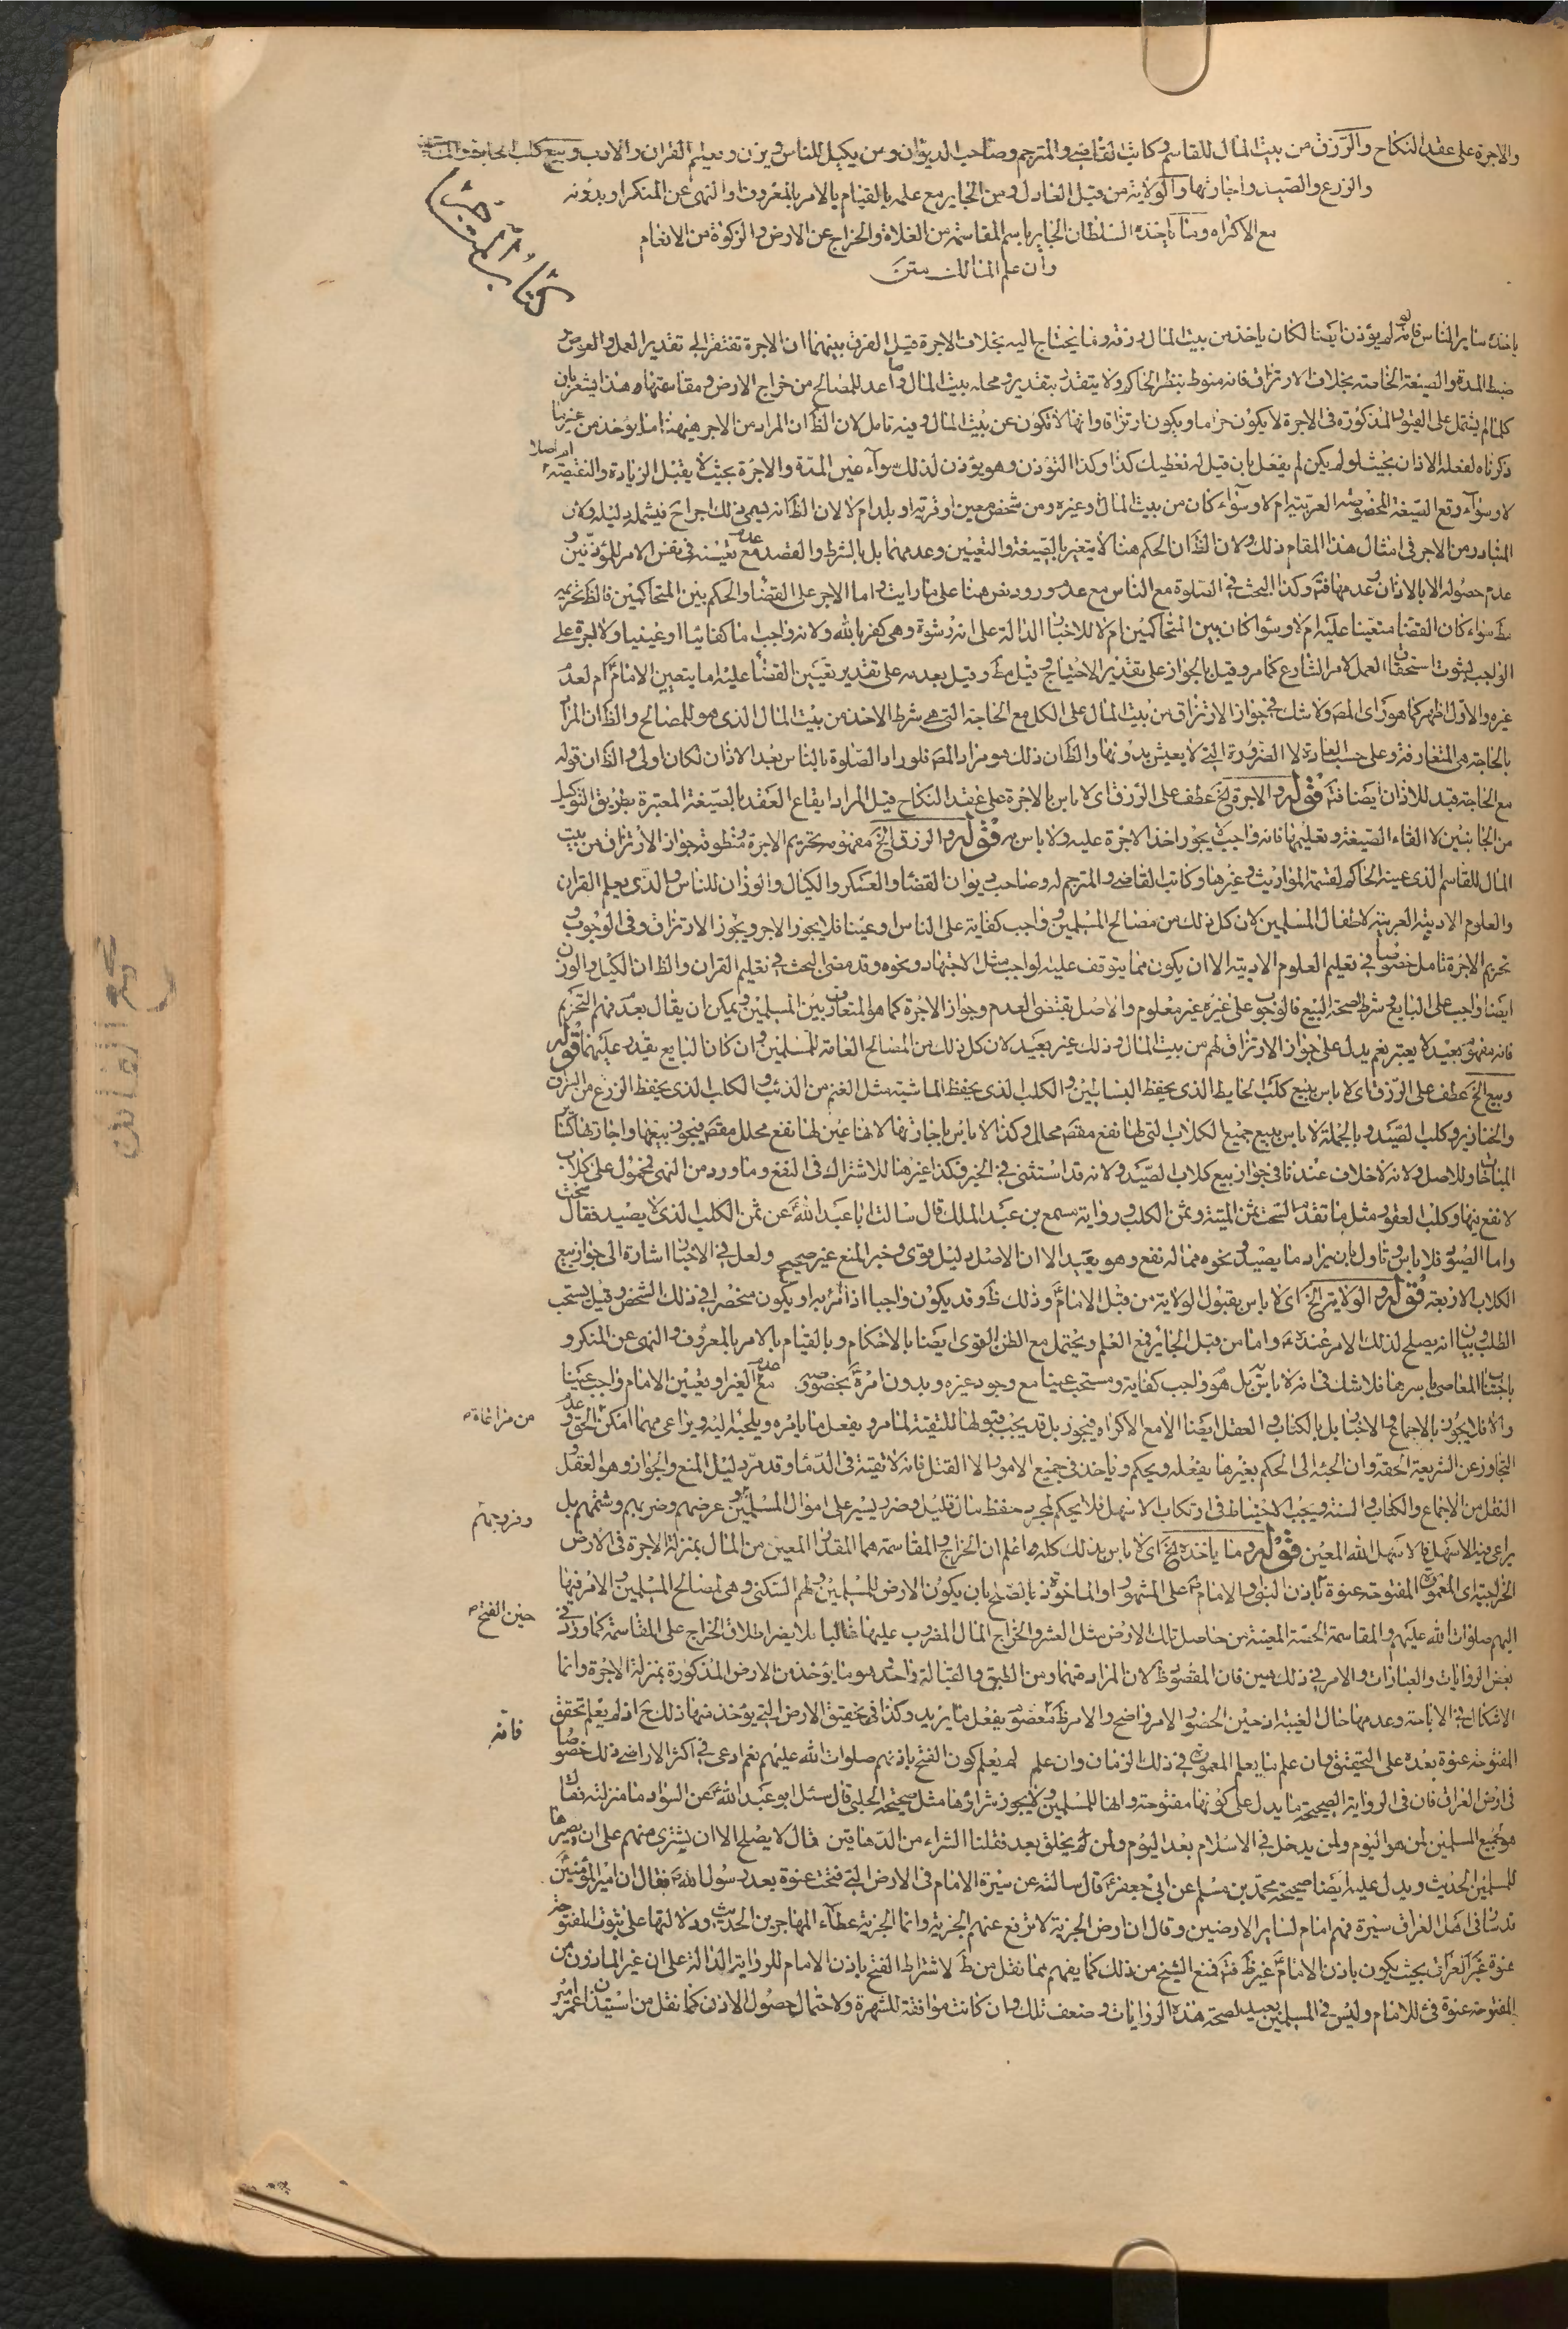 والاجرة على عقد النكاح والرزق من بيت المال للقاسم وكاتب القاضي والمترجم وصاحب الديوان ومن يكيل للناس ويزن ويعلم القران والادب وبيع كلب الحايط والماشية
والزرع والصيد واجارتها والولاية من قبل العادل ومن الجاير مع علمه بالقيام بالامر بالمعروف والنهى عن المنكر او بدونه
مع الاكراه وما ياخذه السلطان الجاير باسم المقاسمة من الغلاة والخراج عن الارض والزكوة من الانعام
وان علم المالك متن
كتاب المتاجر
ياخذه ساير الناس فانه لو لم يؤذن ايضا لكان ياخذ من بيت المال رزقه وما يحتاج اليه بخلاف الاجرة قيل الفرق بينهما ان الاجرة تفتقر الى تقدير العمل والعوض
ضبط المدة والصيغة الخاصة بخلاف الارتزاق فانه منوط بنظر الحاكم ولا يتقدر بتقدير ومحله بيت المال وما اعد للمصالح من خراج الارض ومقاسمتها وهذا يشعر بان
كلما لم يشتمل على القيود المذكورة فى الاجرة لا يكون حراما ويكون ارتزاقا وانها لا تكون عن بيت المال وفيه تامل لان الظ ان المراد من الاجر هيهنا ما يؤخذ من غيرها
ذكرناه لفعله الاذان بحيث لو لم يكن لم يفعل بان قيل له نعطيك كذا وكذا لتؤذن وهو يؤذن لذلك سواء عين المدة والاجرة بحيث لا يقبل الزيادة والنقيصة ام اصلا
لا وسواء وقع الصيغة المخصوصة العربية ام لا وسواء كان من بيت المال وغيره ومن شخص معين او قرية او بلد ام لا لان الظ انه يسمى ذلك اجرا ح فيشمله دليله ولان
المتبادر من الاجر فى امثال هذا المقام ذلك ولان الظ ان الحكم هنا لا يتغير بالصيغة والتعيين وعدمهما بل بالشرط والقصد مع عدم تعيينه فى نفس الامر للمؤذنين و
عدم حصوله الا بالاذان وعدمها فتم وكذا البحث فى الصلوة مع الناس مع عدم ورود نص هنا على ما رايت واما الاجر على القضا والحكم بين المتحاكمين فالظ تحريمه
مط سواء كان القضا متعينا عليه ام لا وسوا كان بين المتحاكمين ام لا للاخبار الدالة على انه رشوة وهى كفر بالله ولانه واجب اما كفائيا او عينيا ولا اجرة على
الواجب لثبوت استحقاق العمل لامر الشارع كما مر وقيل بالجواز على تقدير الاحتياج وقيل مط وقيل بعدمه على تقدير تعيين القضا عليه اما بتعيين الامام ع ام لعدم
غيره والاول اظهر كما هو راى المصه ولا شك فى جواز الارتزاق من بيت المال على الكل مع الحاجة التى هى شرط الاخذ من بيت المال الذى هو للمصالح والظ ان المراد
بالحاجة هى المتعارفة وعلى حسب العادة لا الضرورة التى لا يعيش بدونها والظ ان ذلك هو مراد المصه فلو راد الصلوة بالناس بعد الاذان لكان اولى والظ ان قوله
مع الحاجة قيد للاذان ايضا فتم قوله والاجرة الخ عطف على الرزق اى لا باس بالاجرة على عقد النكاح قيل المراد ايقاع العقد بالصيغة المعتبرة بطريق التوكيل
من الجانبين لا القاء الصيغة وتعليمها فانه واجب لا يجوز اخذ الاجرة عليه ولا باس به قوله والرزق الخ مفهومه تحريم الاجرة ومنطوقه جواز الارتزاق من بيت
المال للقاسم الذى عينه الحاكم لقسمة المواريث وغيرها وكاتب القاضي والمترجم له وصاحب ديوان القضا والعسكر والكيال والوزان للناس والذى يعلم القران
والعلوم الادبية العربية لاطفال المسلمين لان كل ذلك من مصالح المسلمين وواجب كفاية على الناس او عينا فلا يجوز الاجر ويجوز الارتزاق وفى الوجوب و
تحريم الاجرة تامل خصوصا فى تعليم العلوم الادبية الا ان يكون مما يتوقف عليه لواجب مثل الاجتهاد ونحوه وقد مضى البحث فى تعليم القران والظ ان الكيل والوزن
ايضا واجب على البايع وشرط لصحة البيع فالوجوب على غيره غير معلوم والاصل يقتضى العدم وجواز الاجرة كما هو المتعارف بين المسلمين ويمكن ان يقال بعدم فهم التحريم
فانه مفهوم بعيد لا يعتبر نعم يدل على جواز الارتزاق لهم من بيت المال وذلك غير بعيد لان كل ذلك من المصالح العامة للمسلمين وان كان البايع يقدر عليهما قوله
وبيع الخ عطف على الرزق اى لا باس ببيع كلب الحايط الذى يحفظ البساتين والكلب الذى يحفظ الماشية مثل الغنم من الذئب والكلب الذى يحفظ الزرع من السراق
والخنازير وكلب الصيد وبالجملة لا باس ببيع جميع الكلاب التى لها نفع مقصود محلل وكذا لا باس باجارتها لانها عين لها نفع محلل مقصود فيجوز بيعها واجارتها كسائر
المباحات وللاصل ولانه لا خلاف عندنا فى جواز بيع كلاب الصيد ولانه قد استثنى فى الخبر فكذا غيرها للاشتراك فى النفع وما ورد من النهى محمول على كلاب
لا نفع فيها وكلب العقور مثل ما تقدم السحت ثمن الميتة وثمن الكلب ورواية مسمع بن عبد الملك قال سالت ابا عبد الله ع عن ثمن الكلب الذى لا يصيد فقال سحت
واما الصيود فلا باس وتاول بان يراد ما يصيد ونحوه مما له نفع وهو بعيد الا ان الاصل دليل قوى وخبر المنع غير صحيح ولعل فى الاخبار اشارة الى جواز بيع
الكلاب الاربعة قوله والولاية الخ اى لا باس بقبول الولاية من قبل الامام ع وذلك ظ وقد يكون واجبا اذا امر به او يكون منحصرا فى ذلك الشخص وقيل يستحب
الطلب وبيان انه يصلح لذلك الامر عنده ع واما من قبل الجائر فمع العلم ويحتمل مع الظن القوى ايضا بالاحكام وبالقيام بالامر بالمعروف والنهى عن المنكر و
باجتناب المعاصى باسرها فلا شك فى انه لا باس به بل هو واجب كفاية ومستحب عينا مع وجود غيره وبدون امره بخصوصه مع عدم الغير او تعيين الامام واجب عينا
والا فلا يجوز بالاجماع والاخبار بل بالكتاب والعقل ايضا الا مع الاكراه فيجوز بل قد يجب قبولها للتقية لما مر ويفعل ما يامره ويلجئه اليه ويراعى مهما امكن الحق وعدم
من مراعاة
التجاوز عن الشريعة الحقة وان الجئه الى الحكم بغيرها يفعله ويحكم وياخذ فى جميع الامور الا القتل فانه لا تقية فى الدما وقد مر دليل المنع والجواز وهو العقل
النقل من الاجماع والكتاب والسنة ويجب الاحتياط فى ارتكاب الاسهل فلا يحكم لمجرد حفظ مال قليل وضرر يسير على اموال المسلمين وعرضهم وضربهم وشتمهم بل
وفروجهم
يراعى فيه الاسهل فالاسهل الله المعين قوله وما ياخذه الخ اى لا باس بذلك كله واعلم ان الخراج والمقاسمة هما المقدار المعين من المال بمنزلة الاجرة فى الارض
الخراجية اى المعمورة المفتوحة عنوة باذن النبى ص والامام ع على المشهور او الماخوذة بالصلح بان يكون الارض للمسلمين ولهم السكنى وهى لمصالح المسلمين والامر فيها
حين الفتح
اليهم صلوات الله عليهم والمقاسمة الحصة المعينة من حاصل تلك الارض مثل العشر والخراج المال المضروب عليها غالبا فلا يضر اطلاق الخراج على المقاسمة كما ورد فى
بعض الروايات والعبارات والامر فى ذلك هين فان المقصود ظ لان المراد منهما ومن الطبق والقبالة واحد وهو ما يؤخذ من الارض المذكورة بمنزلة الاجرة وانما
الاشكال فى الاباحة وعدمها حال الغيبة اذ حين الحضور الامر واضح والامر ظ معصوم يفعل ما يريد وكذا فى تحقيق الارض التى يؤخذ منها ذلك ح اذ لم يعلم تحقق
فانه
المفتوحة عنوة بعده على التحقيق وان علم ما يعلم المعمورة فى ذلك الزمان وان علم لم يعلم كون الفتح باذنهم صلوات الله عليهم نعم ادعى فى اكثر الاراضى ذلك خصوصا
فى ارض العراق فان فى الرواية الصحيحة ما يدل على كونها مفتوحة وانها للمسلمين ولا يجوز شراؤها مثل صحيحة الحلبى قال سئل ابو عبد الله ع عن السواد ما منزلته فقال
هو لجميع المسلمين لمن هو اليوم ولمن يدخل فى الاسلام بعد اليوم ولمن لم يخلق بعد فقلنا الشراء من الدهاقين قال لا يصلح الا ان يشترى منهم على ان يصيرها
للمسلمين الحديث ويدل عليه ايضا صحيحة محمد بن مسلم عن ابى جعفر ع قال سالته عن سيرة الامام فى الارض التى فتحت عنوة بعد رسول الله ص فقال ان امير المؤمنين
قد سار فى اهل العراق سيرة فهم امام لساير الارضين وقال ان ارض الجزية لا ترفع عنهم الجزية وانما الجزية عطاء المهاجرين الحديث ودلالتها على ثبوت المفتوحة
عنوة غير العراق بحيث يكون باذن الامام ع غير ظ فتم فمنع الشيخ من ذلك كما يفهم مما نقل من ط لاشتراط الفتح باذن الامام للرواية الدالة على ان غير الماذون من
المفتوحة عنوة فئ للامام وليس فى المسلمين بعيد لصحة هذه الروايات وضعف تلك وان كانت موافقة للشهرة ولاحتمال حصول الاذن كما نقل من استيذان عمر امير